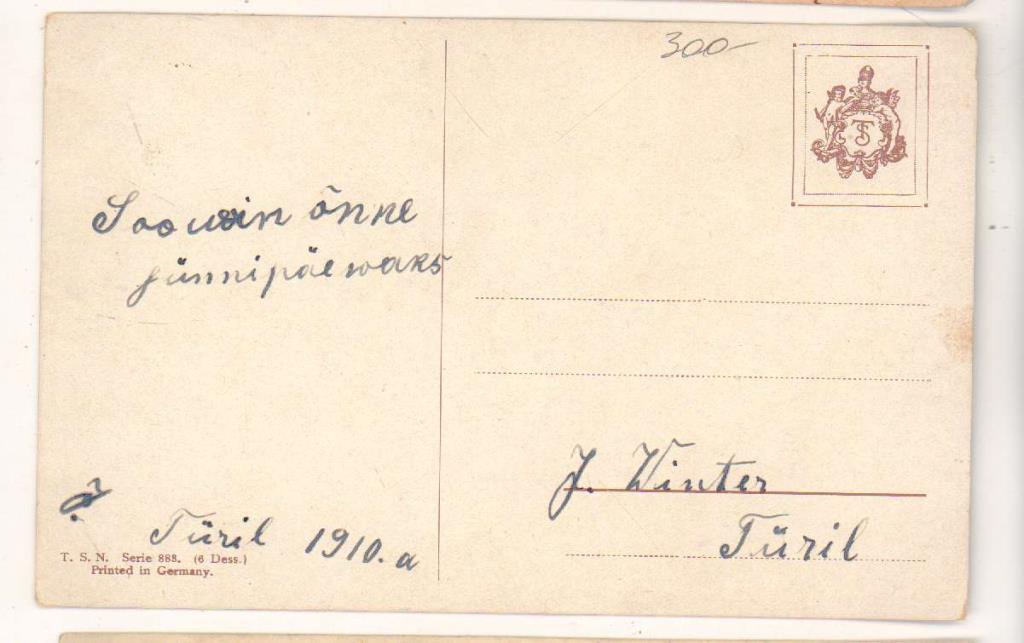 300-
TS
Soowin õnne
sünnipäewaks
Türil 1910.a
T. S. N. Serie 888. (6 Dess.)
Printed in Germany.
J. Winter
Türil